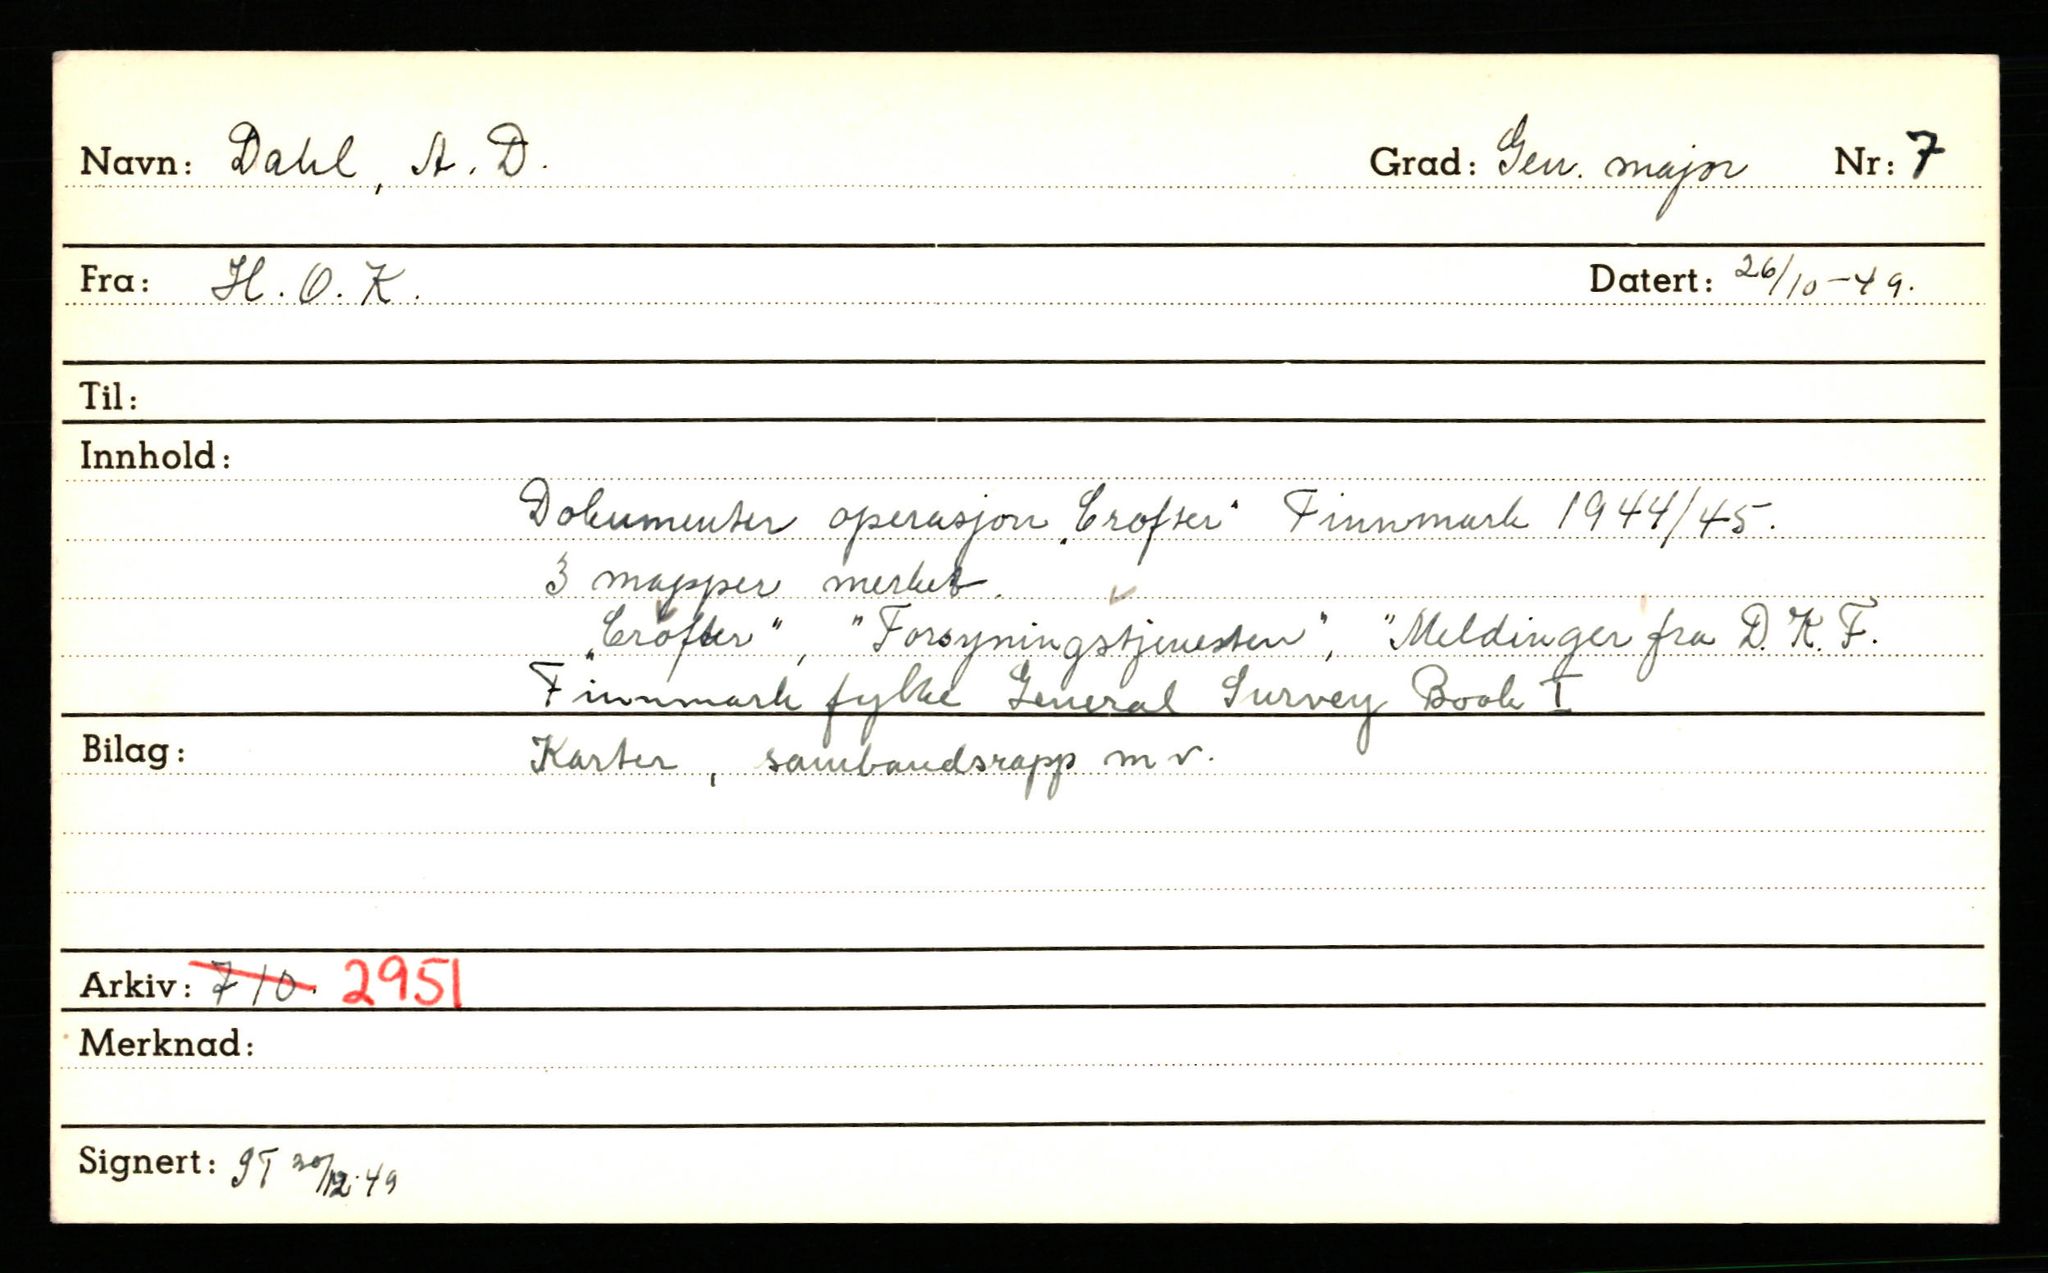 Navn: Dahl, A. D. Grad: Gen. major Nr: 7
Fra: H. O. K. Datert: 26/10-49.
Til:
Innhold:
Dokumenter operasjon „Crofter" Finnmark 1944/45.
3 mapper merket.
„Crofter", "Forsyningstjenesten", "Meldinger fra D. K. F.
Finnmark fylke General Survey Book I
Bilag: Karter, sambandsrapp m v.
Arkiv: 710. 2951
Merknad:
Signert: 20/12-49